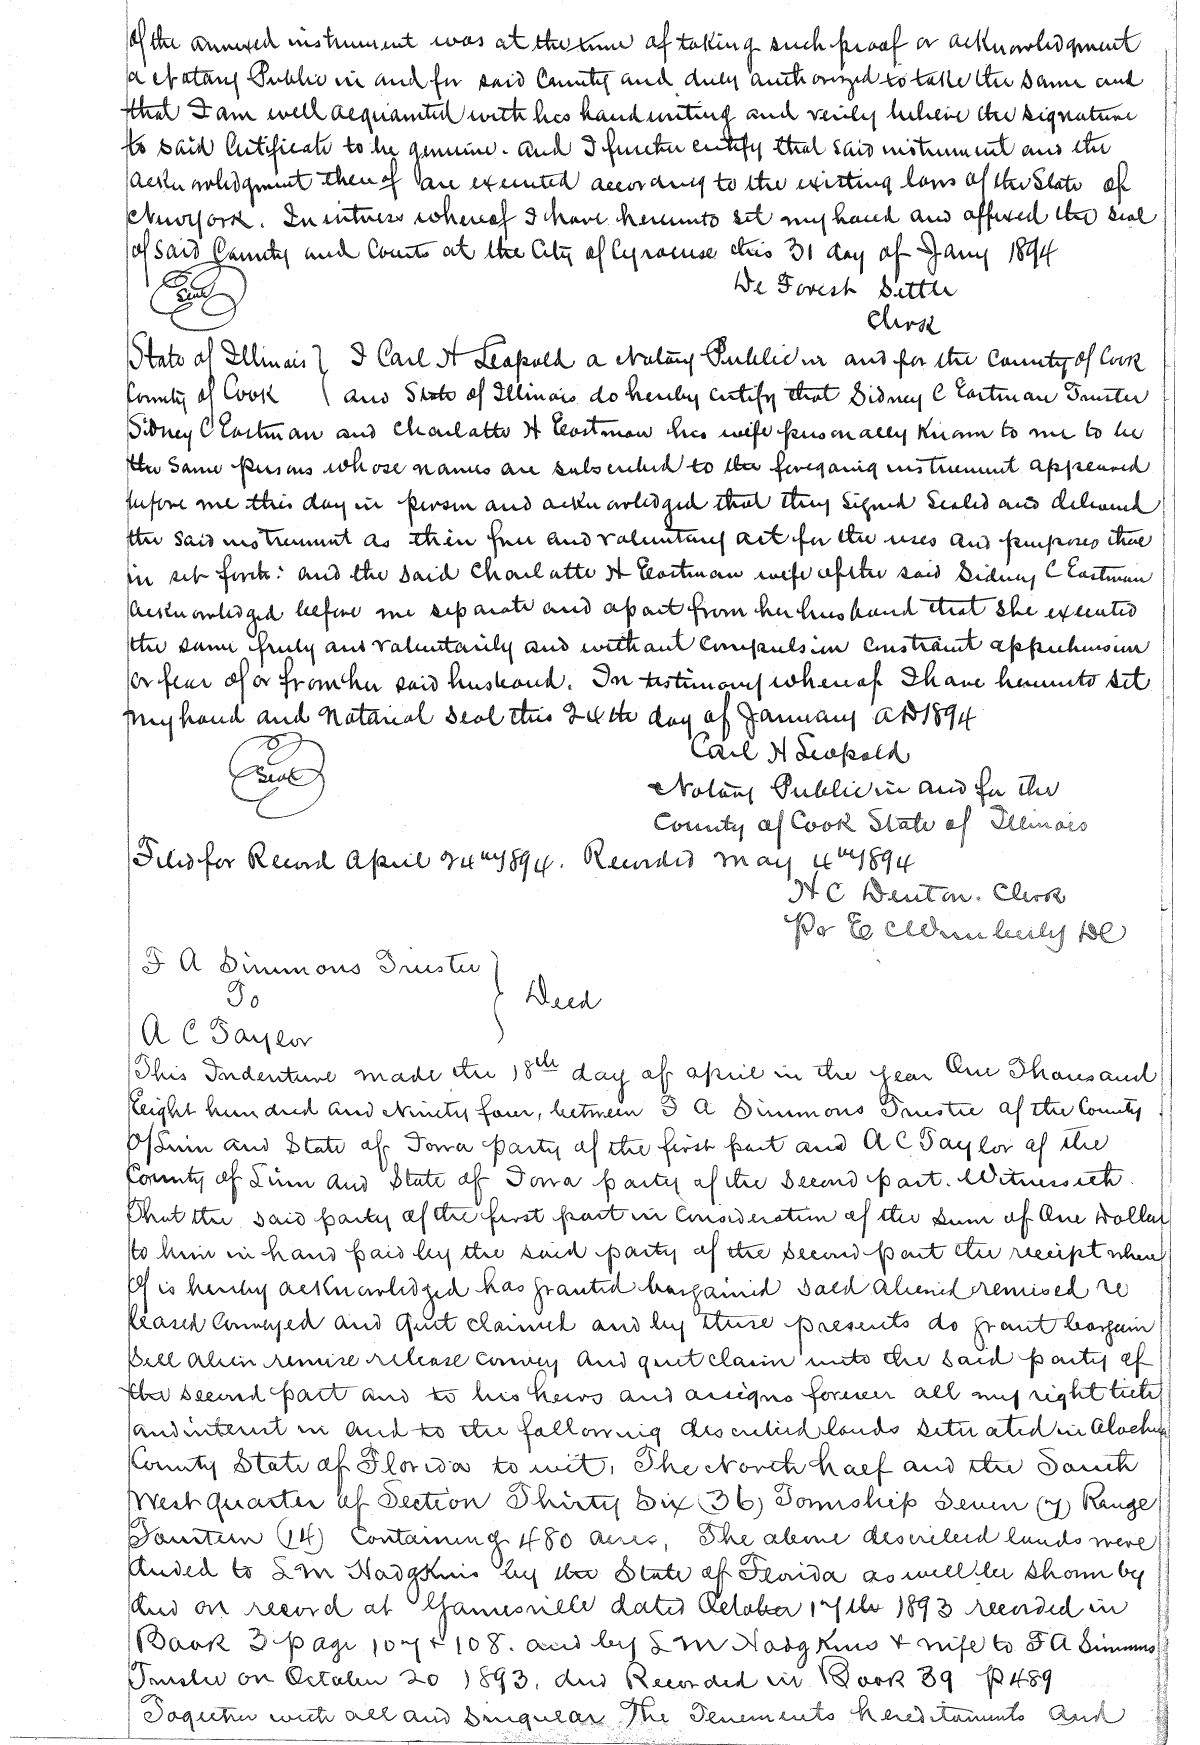 of the annexed instrument was at the time of taking such proof or acknowledgment
a Notary Public in and for said County and duly authorized to take the same and
that I am well acquainted with his handwriting and verily believe the signature
to said Certificate to be genuine. And I further certify that said instrument and the
acknowledgment thereof are executed according to the existing laws of the State of
New York. In witness whereof I have hereunto set my hand and affixed the seal
of said County and Courts at the City of Syracuse this 31 day of Jany 1894
Seal
De Forest Settle
Clerk
State of Illinois } I Carl H Leopold a Notary Public in and for the County of Cook
County of Cook and State of Illinois do hereby certify that Sidney C Eastman Trustee
Sidney C Eastman and Charlotte H Eastman his wife personally known to me to be
the same persons whose names are subscribed to the foregoing instrument appeared
before me this day in person and acknowledged that they signed sealed and delivered
the said instrument as their free and voluntary act for the uses and purposes there
in set forth: and the said Charlotte H Eastman wife of the said Sidney C Eastman
acknowledged before me separate and apart from her husband that she executed
the same freely and voluntarily and without compulsion constraint apprehension
or fear of or from her said husband. In testimony whereof I have hereunto set
my hand and Notarial Seal this 24th day of January AD 1894
Seal
Carl H Leopold
Notary Public in and for the
County of Cook State of Illinois
Filed for Record April 24th 1894. Recorded May 4th 1894
H C Denton. Clerk
Per E C Wimberly DC
F A Simmons Trustee
To } Deed
A C Taylor
This Indenture made the 18th day of April in the year One Thousand
Eight hundred and Ninety four, between F A Simmons Trustee of the County
of Linn and State of Iowa party of the first part and A C Taylor of the
County of Linn and State of Iowa party of the second part. Witnesseth
That the said party of the first part in Consideration of the sum of One Dollar
to him in hand paid by the said party of the second part the receipt where
of is hereby acknowledged has granted bargained sold aliened remised re
leased conveyed and quit claimed and by these presents do grant bargain
sell alien remise release convey and quit claim unto the said party of
the second part and to his heirs and assigns forever all my right title
and interest in and to the following described lands situated in Alachua
County State of Florida to wit, The North half and the South
West quarter of Section Thirty Six (36) Township Seven (7) Range
Fourteen (14) Containing 480 acres, The above described lands were
deeded to L M Hodgkins by the State of Florida as will be shown by
deed on record at Gainesville dated October 17th 1893 recorded in
Book 3 page 107 + 108. and by L M Hodgkins + wife to F A Simmons
Trustee on October 20 1893, deed Recorded in Book 39 p 489
Together with all and singular the Tenements hereditaments and